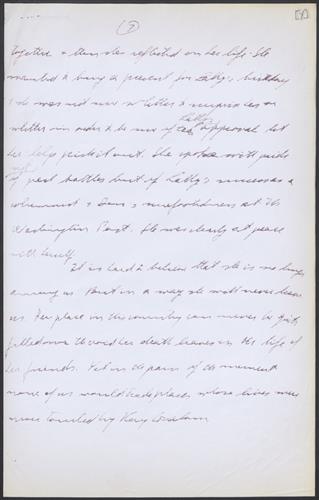 (7)
together & then she reflected on her life. She
wanted to buy a present for Lally's birthday
& she was not sure whether to surprise her or
whether in order to be sure of Lally's approval let
her help pick it out. She spoke with pride
not of past battles but of Lally's success as a
columnist & Don's surefootedness at the
Washington Post. She was clearly at peace
with herself.
It is hard to believe that she is no longer
among us. But in a way she will never leave
us. Her place in the country can never be quite
filled nor the void her death leaves in the life of
her friends. Yet in the pain of the moment
none of us would trade places whose lives were
once touched by Kay Graham.